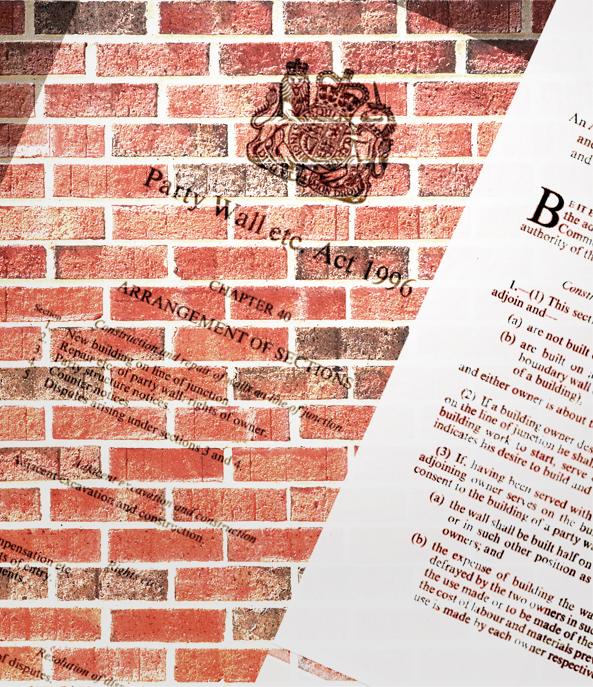 Party Wall etc. Act 1996
CHAPTER 40
ARRANGEMENT OF SECTIONS
Section
Construction and repair of walls on line of junction
1. New building on line of junction
Repair etc. of party wall: rights of owner.
Party structure notices.
Counter notices.
Disputes arising under sections 3 and 4.
Adjacent excavation and construction
Adjacent excavation and construction.
Rights etc.
mpensation etc.
ts of entry.
ments.
Resolution of dis
of disputes.
An A
and
and
BE IT E
the ad
Comm
authority of th
Constr
1.—(1) This sect
adjoin and—
(a) are not built o
(b) are built on
boundary wall
of a building),
and either owner is about t
(2) If a building owner des
on the line of junction he shal
building work to start, serve
indicates his desire to build and
(3) If, having been served with
adjoining owner serves on the bu
consent to the building of a party wa
(a) the wall shall be built half on
or in such other position as
owners; and
(b) the expense of building the wa
defrayed by the two owners in suc
the use made or to be made of the
the cost of labour and materials prev
use is made by each owner respectiv